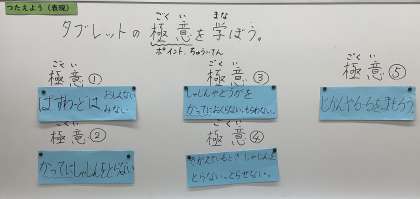 つたえよう（表現）
ごくい まな
タブレットの極意を学ぼう。
ポイント、ちゅういてん
ごくい
極意①
ぱすわーどは おしえない
みない
ごくい
極意②
かってにしゃしんをとらない
ごくい
極意③
しゃしんやどうがを
かってにおくらない、もらわない。
ごくい
極意④
しゃしんを
とらない、とらせない。
ごくい
極意⑤
じかんやルールをまもろう